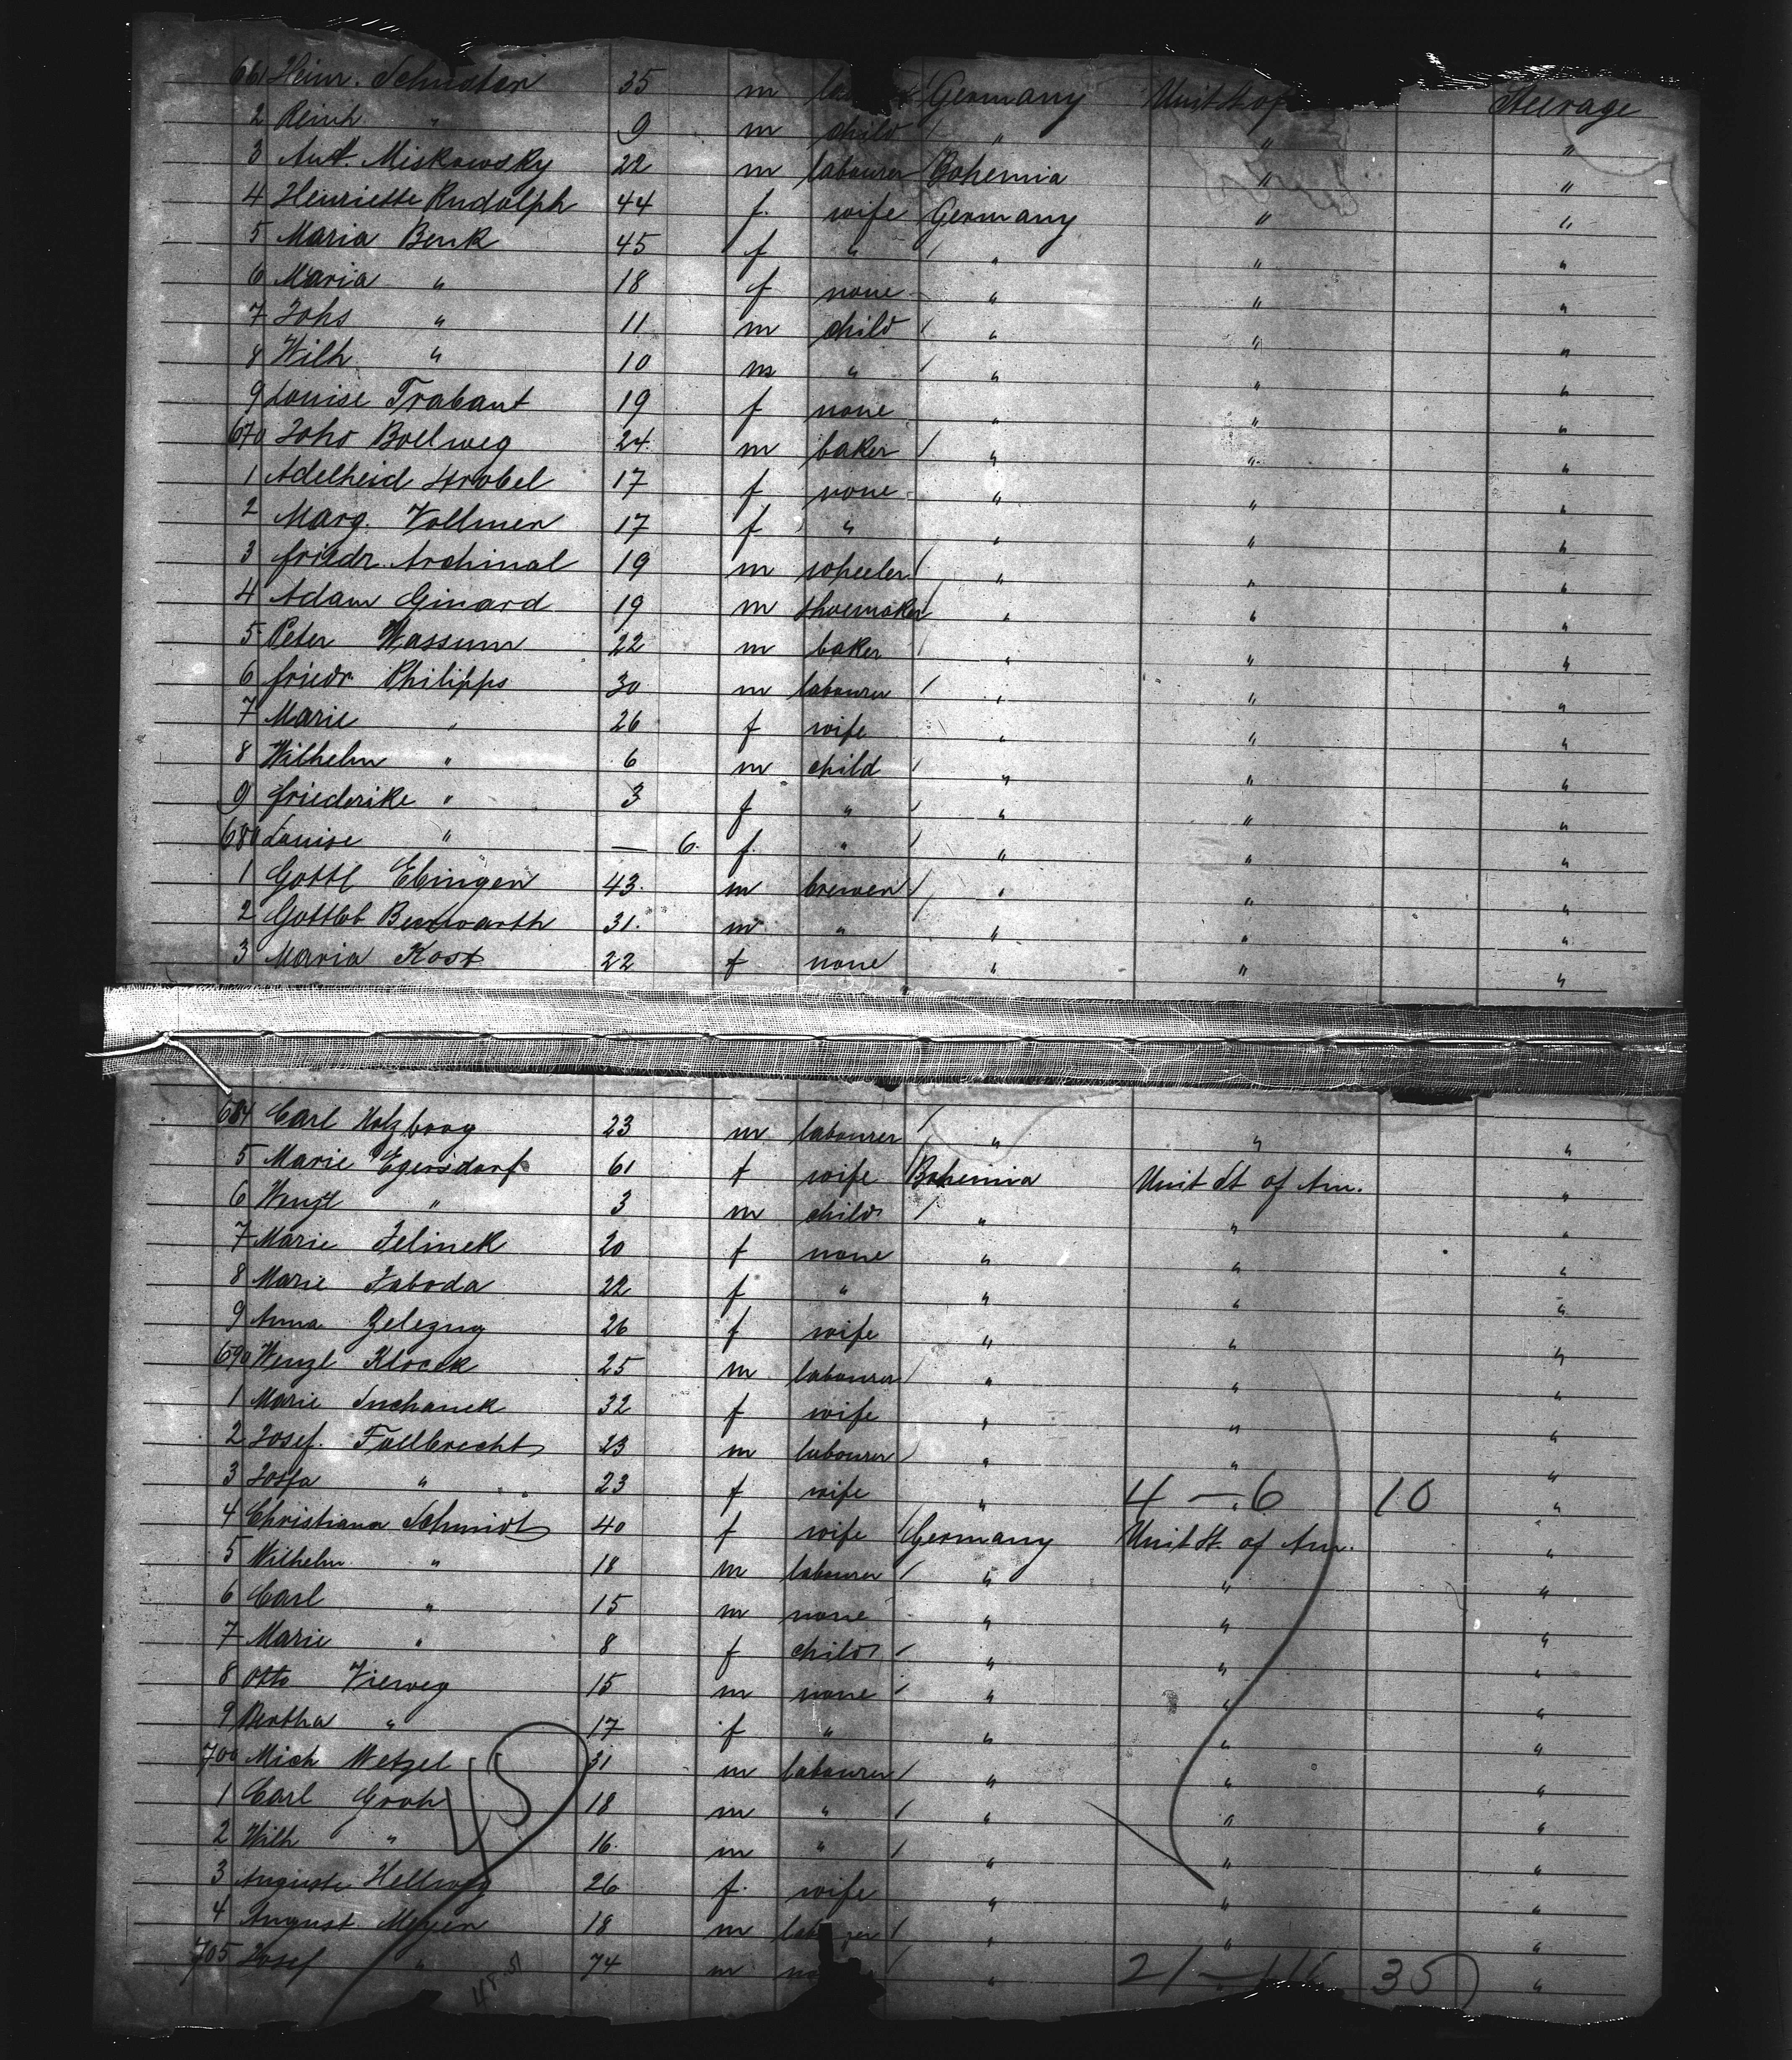 661 Heinr. Schuster 35 m Germany Unit St of Steerage
2 Reinh " 9 m child " " "
3 Ant. Miskowsky 22 m labourer Bohemia " "
4 Henriette Rudolph 44 f. wife Germany " "
5 Maria Benk 45 f " " " "
6 Maria " 18 f none " " "
7 Johs " 11 m child " " "
8 Wilh " 10 m " " " "
9 Louise Trabant 19 f none " " "
670 Johs Bollweg 24. m baker " " "
1 Adelheid Strobel 17 f none " " "
2 Marg. Vollmer 17 f " " " "
3 friedr. Archinal 19 m wheeler " " "
4 Adam Ginard 19 m shoemaker " " "
5 Peter Wassum 22 m baker " " "
6 friedr Philipps 30 m labourer " " "
7 Marie " 26 f wife " " "
8 Wilhelm " 6 m child " " "
9 friederike " 3 f " " " "
680 Louise " — 6. f. " " " "
1 Gottl Ebinger 43. m brewer " " "
2 Gottlob 31. m " " " "
3 Maria Kost 22 f none " " "
684 Carl Holzboog 23 m labourer " " "
5 Marie Egersdorf 61 f wife Bohemia Unit St of Am. "
6 Wenzl " 3 m child " " "
7 Marie Jelinek 20 f none " " "
8 Marie Laboda 22 f " " " "
9 Anna Zelezny 26 f wife " " "
690 Wenzl Klocek 25 m labourer " " "
1 Marie Suchanek 32 f wife " " "
2 Josef. Fullbrecht 23 m labourer " " "
3 Josfa " 23 f wife " 4 — 6 10 "
4 Christiana Schmidt 40 f wife Germany Unit St. of Am. "
5 Wilhelm " 18 m labourer " " "
6 Carl " 15 m none " " "
7 Marie " 8 f child " " "
8 Otto Vieweg 15 m none " " "
9 Bertha " 17 f " " " "
700 Mich Wetzel 31 m labourer " " "
1 Carl Groh 18 m " " " "
2 Wilh " 16. m " " " "
3 Auguste Hellweg 26 f. wife " " "
4 August Meyer 18 m " " "
705 Josef " 74 m " 35 "